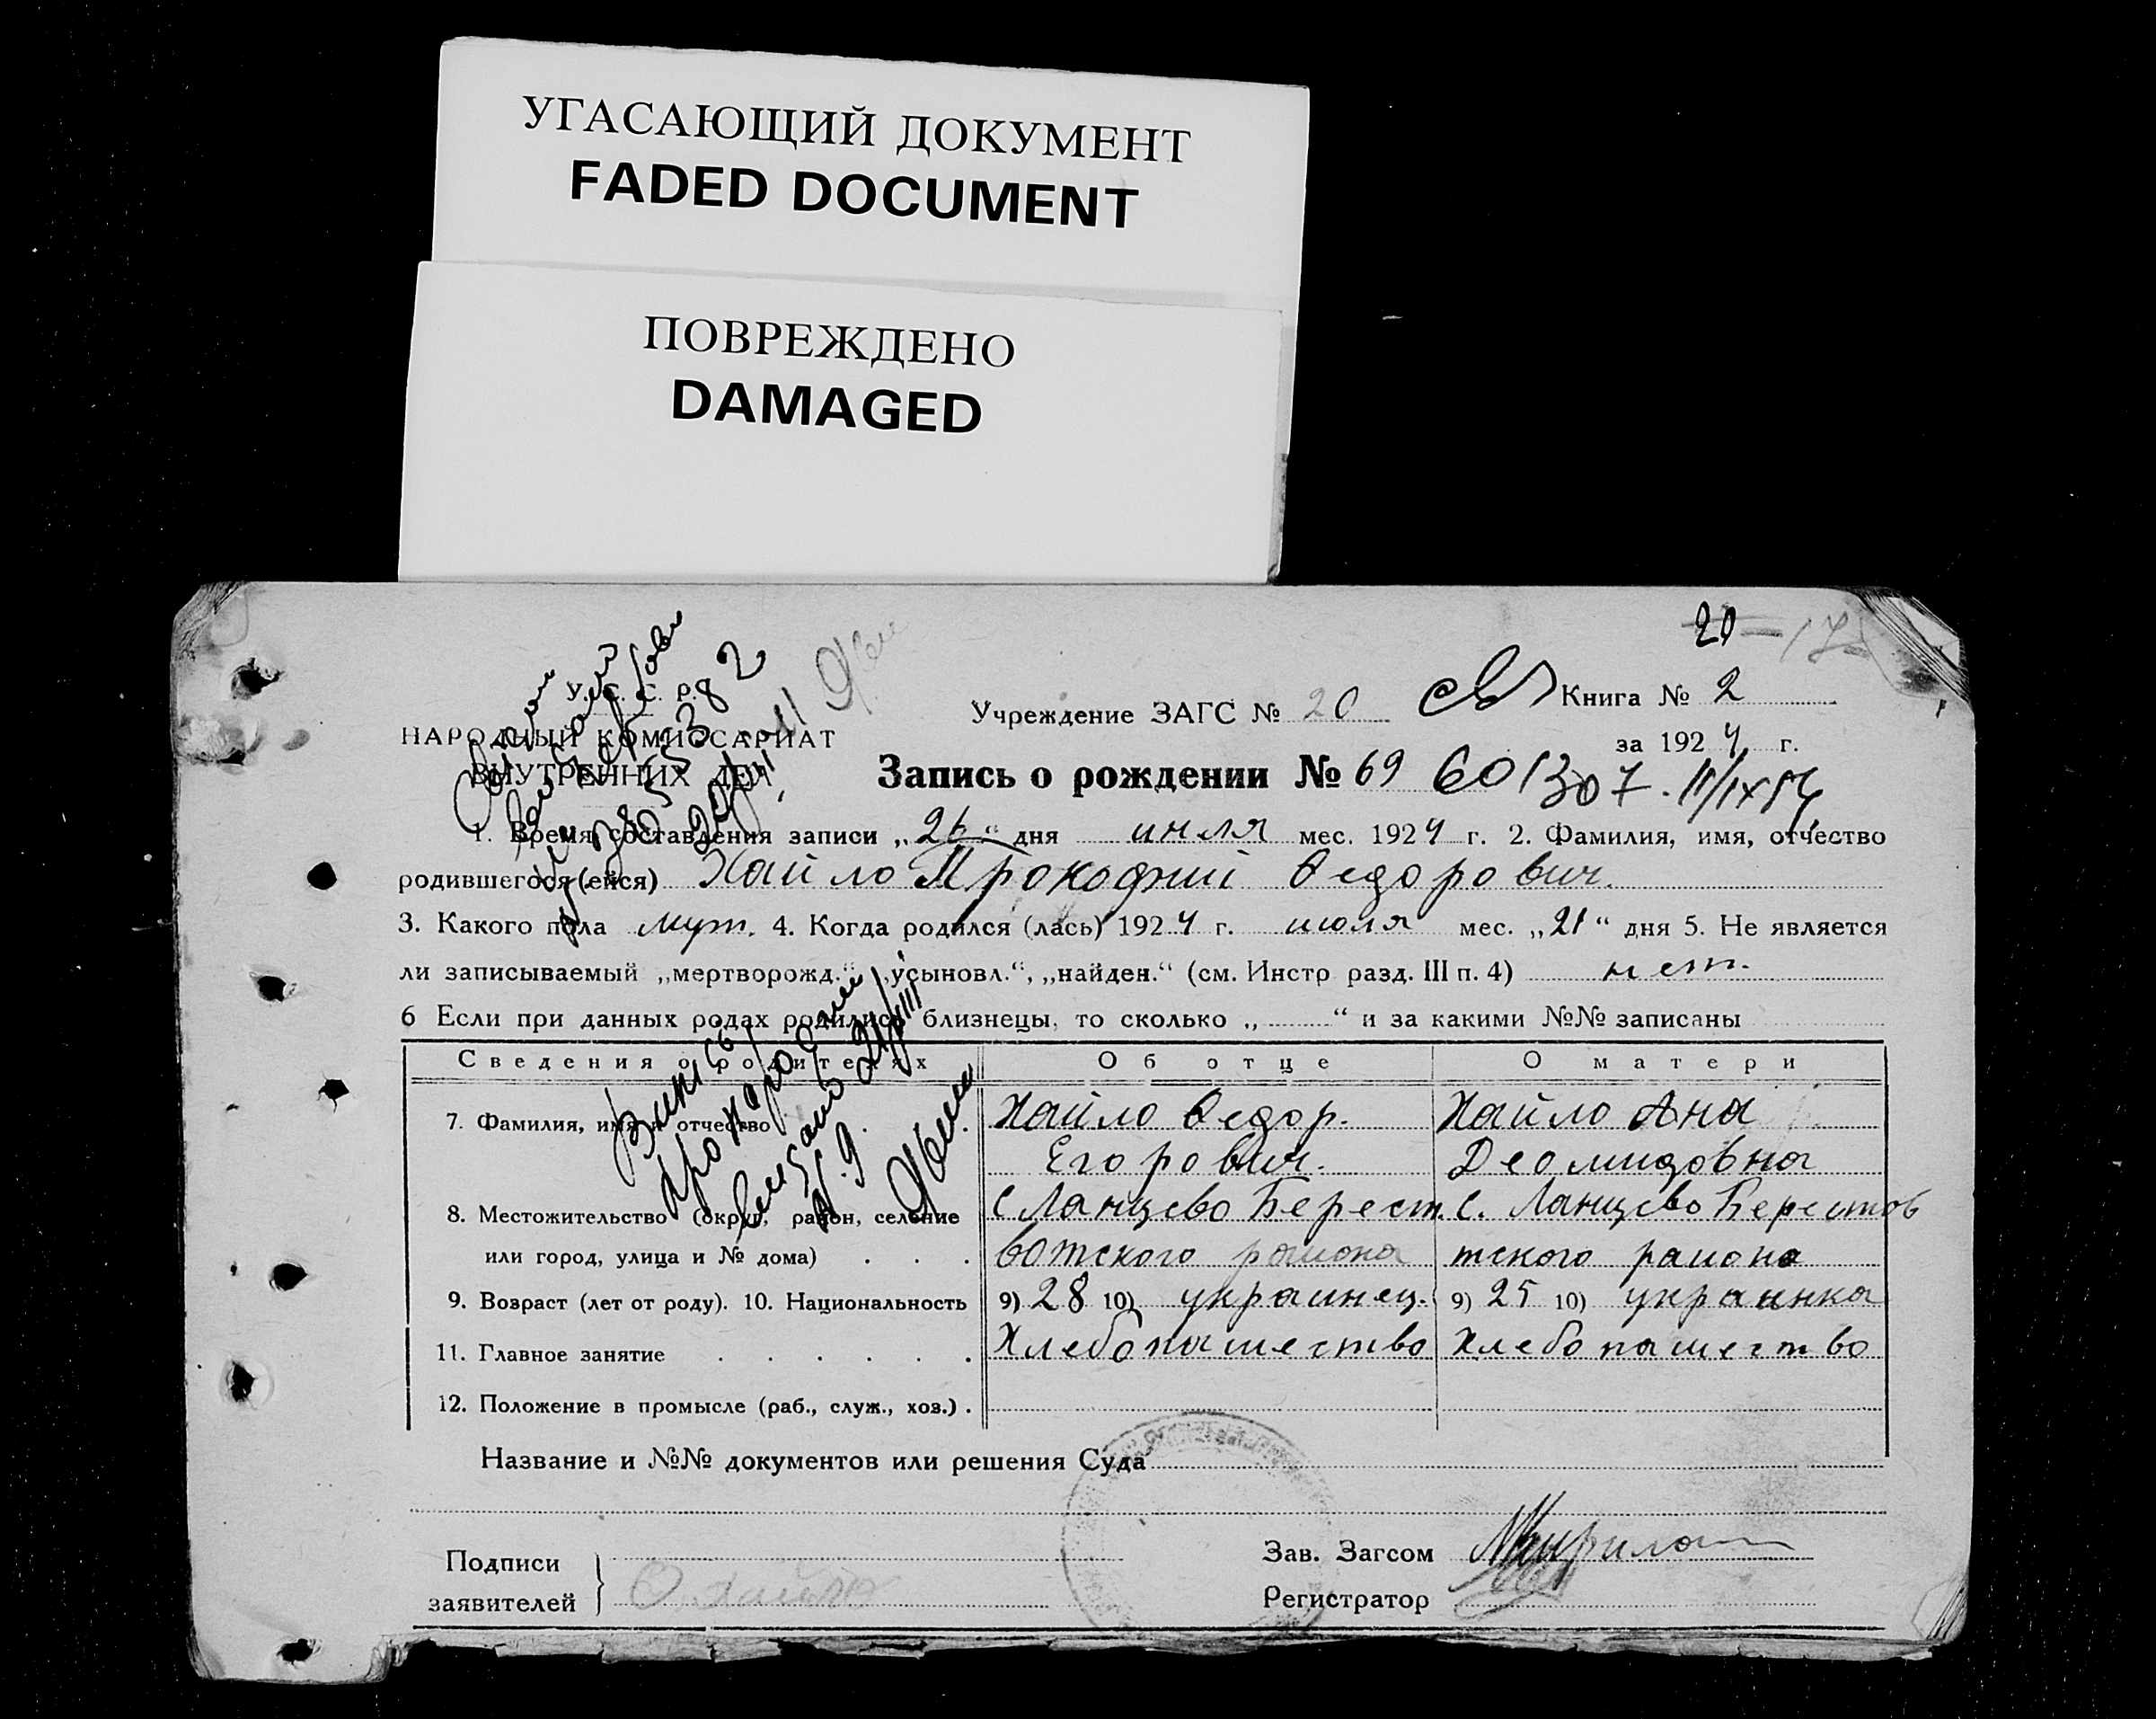 УГАСАЮЩИЙ ДОКУМЕНТ
FADED DOCUMENT
ПОВРЕЖДЕНО
DAMAGED
20 — 17
У. С. С. Р.
НАРОДНЫЙ КОМИССАРИАТ
ВНУТРЕННИХ ДЕЛ
Учреждение ЗАГС № 20 Книга № 2
за 1924 г.
Запись о рождении № 69
1. Время составления записи „26“ дня июля мес. 1924 г. 2. Фамилия, имя, отчество
родившегося (ейся) Хайло Прокофий Федорович.
3. Какого пола муж. 4. Когда родился (лась) 1924 г. июля мес. „21“ дня 5. Не является
ли записываемый „мертворожд.“ „усыновл.“, „найден.“ (см. Инстр разд. III п. 4) нет.
6 Если при данных родах родились близнецы, то сколько „ “ и за какими №№ записаны
Сведения о родителях Об отце О матери
7. Фамилия, имя и отчество Хайло Федор. Хайло Ана
Егорович. Деомидовна
8. Местожительство (округ, район, селение С Ланцево Берест. С. Ланцево Берестов
или город, улица и № дома) . . . вотского района тского района
9. Возраст (лет от роду). 10. Национальность 9) 28 10) украинец. 9) 25 10) украинка
11. Главное занятие . . . . . . Хлебопашество Хлебопашество
12. Положение в промысле (раб., служ., хоз.) .
Название и №№ документов или решения Суда
Подписи
заявителей
Зав. Загсом
Регистратор